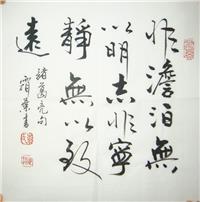 非澹泊無
以明志非寧
靜無以致
遠
諸葛亮句